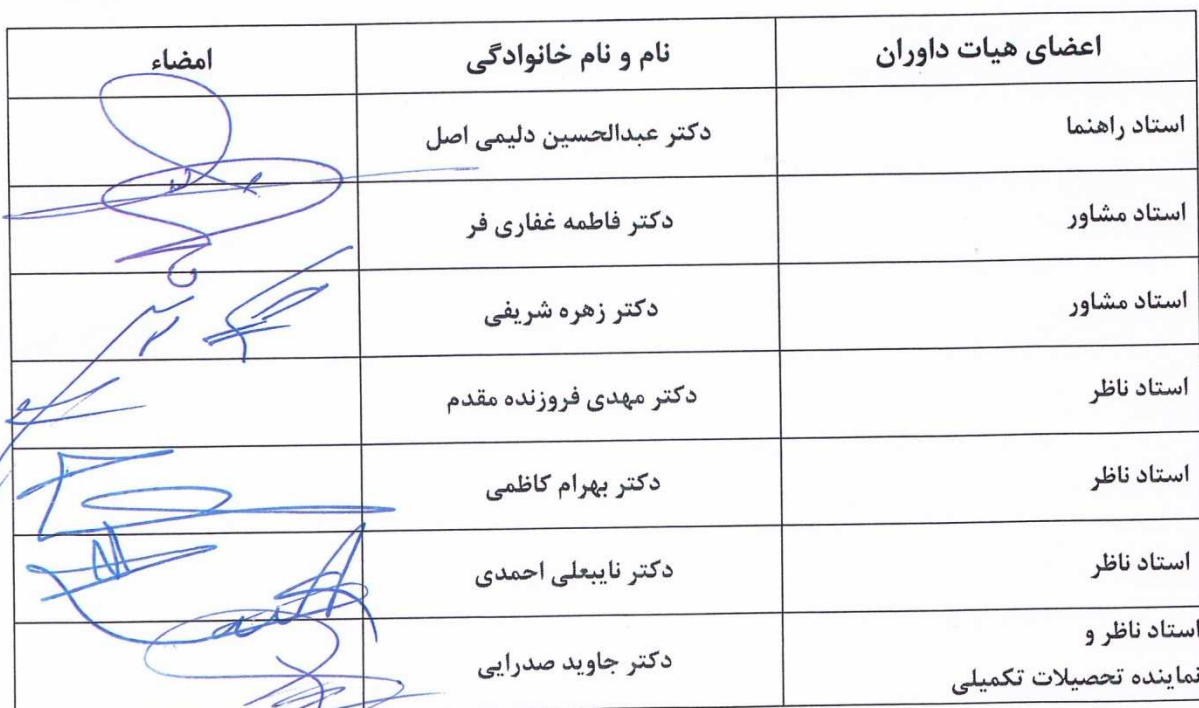 اعضای هیات داوران نام و نام خانوادگی امضاء
استاد راهنما دکتر عبدالحسین دلیمی اصل
استاد مشاور دکتر فاطمه غفاری فر
استاد مشاور دکتر زهره شریفی
استاد ناظر دکتر مهدی فروزنده مقدم
استاد ناظر دکتر بهرام کاظمی
استاد ناظر دکتر نایبعلی احمدی
استاد ناظر و
نماینده تحصیلات تکمیلی دکتر جاوید صدرایی